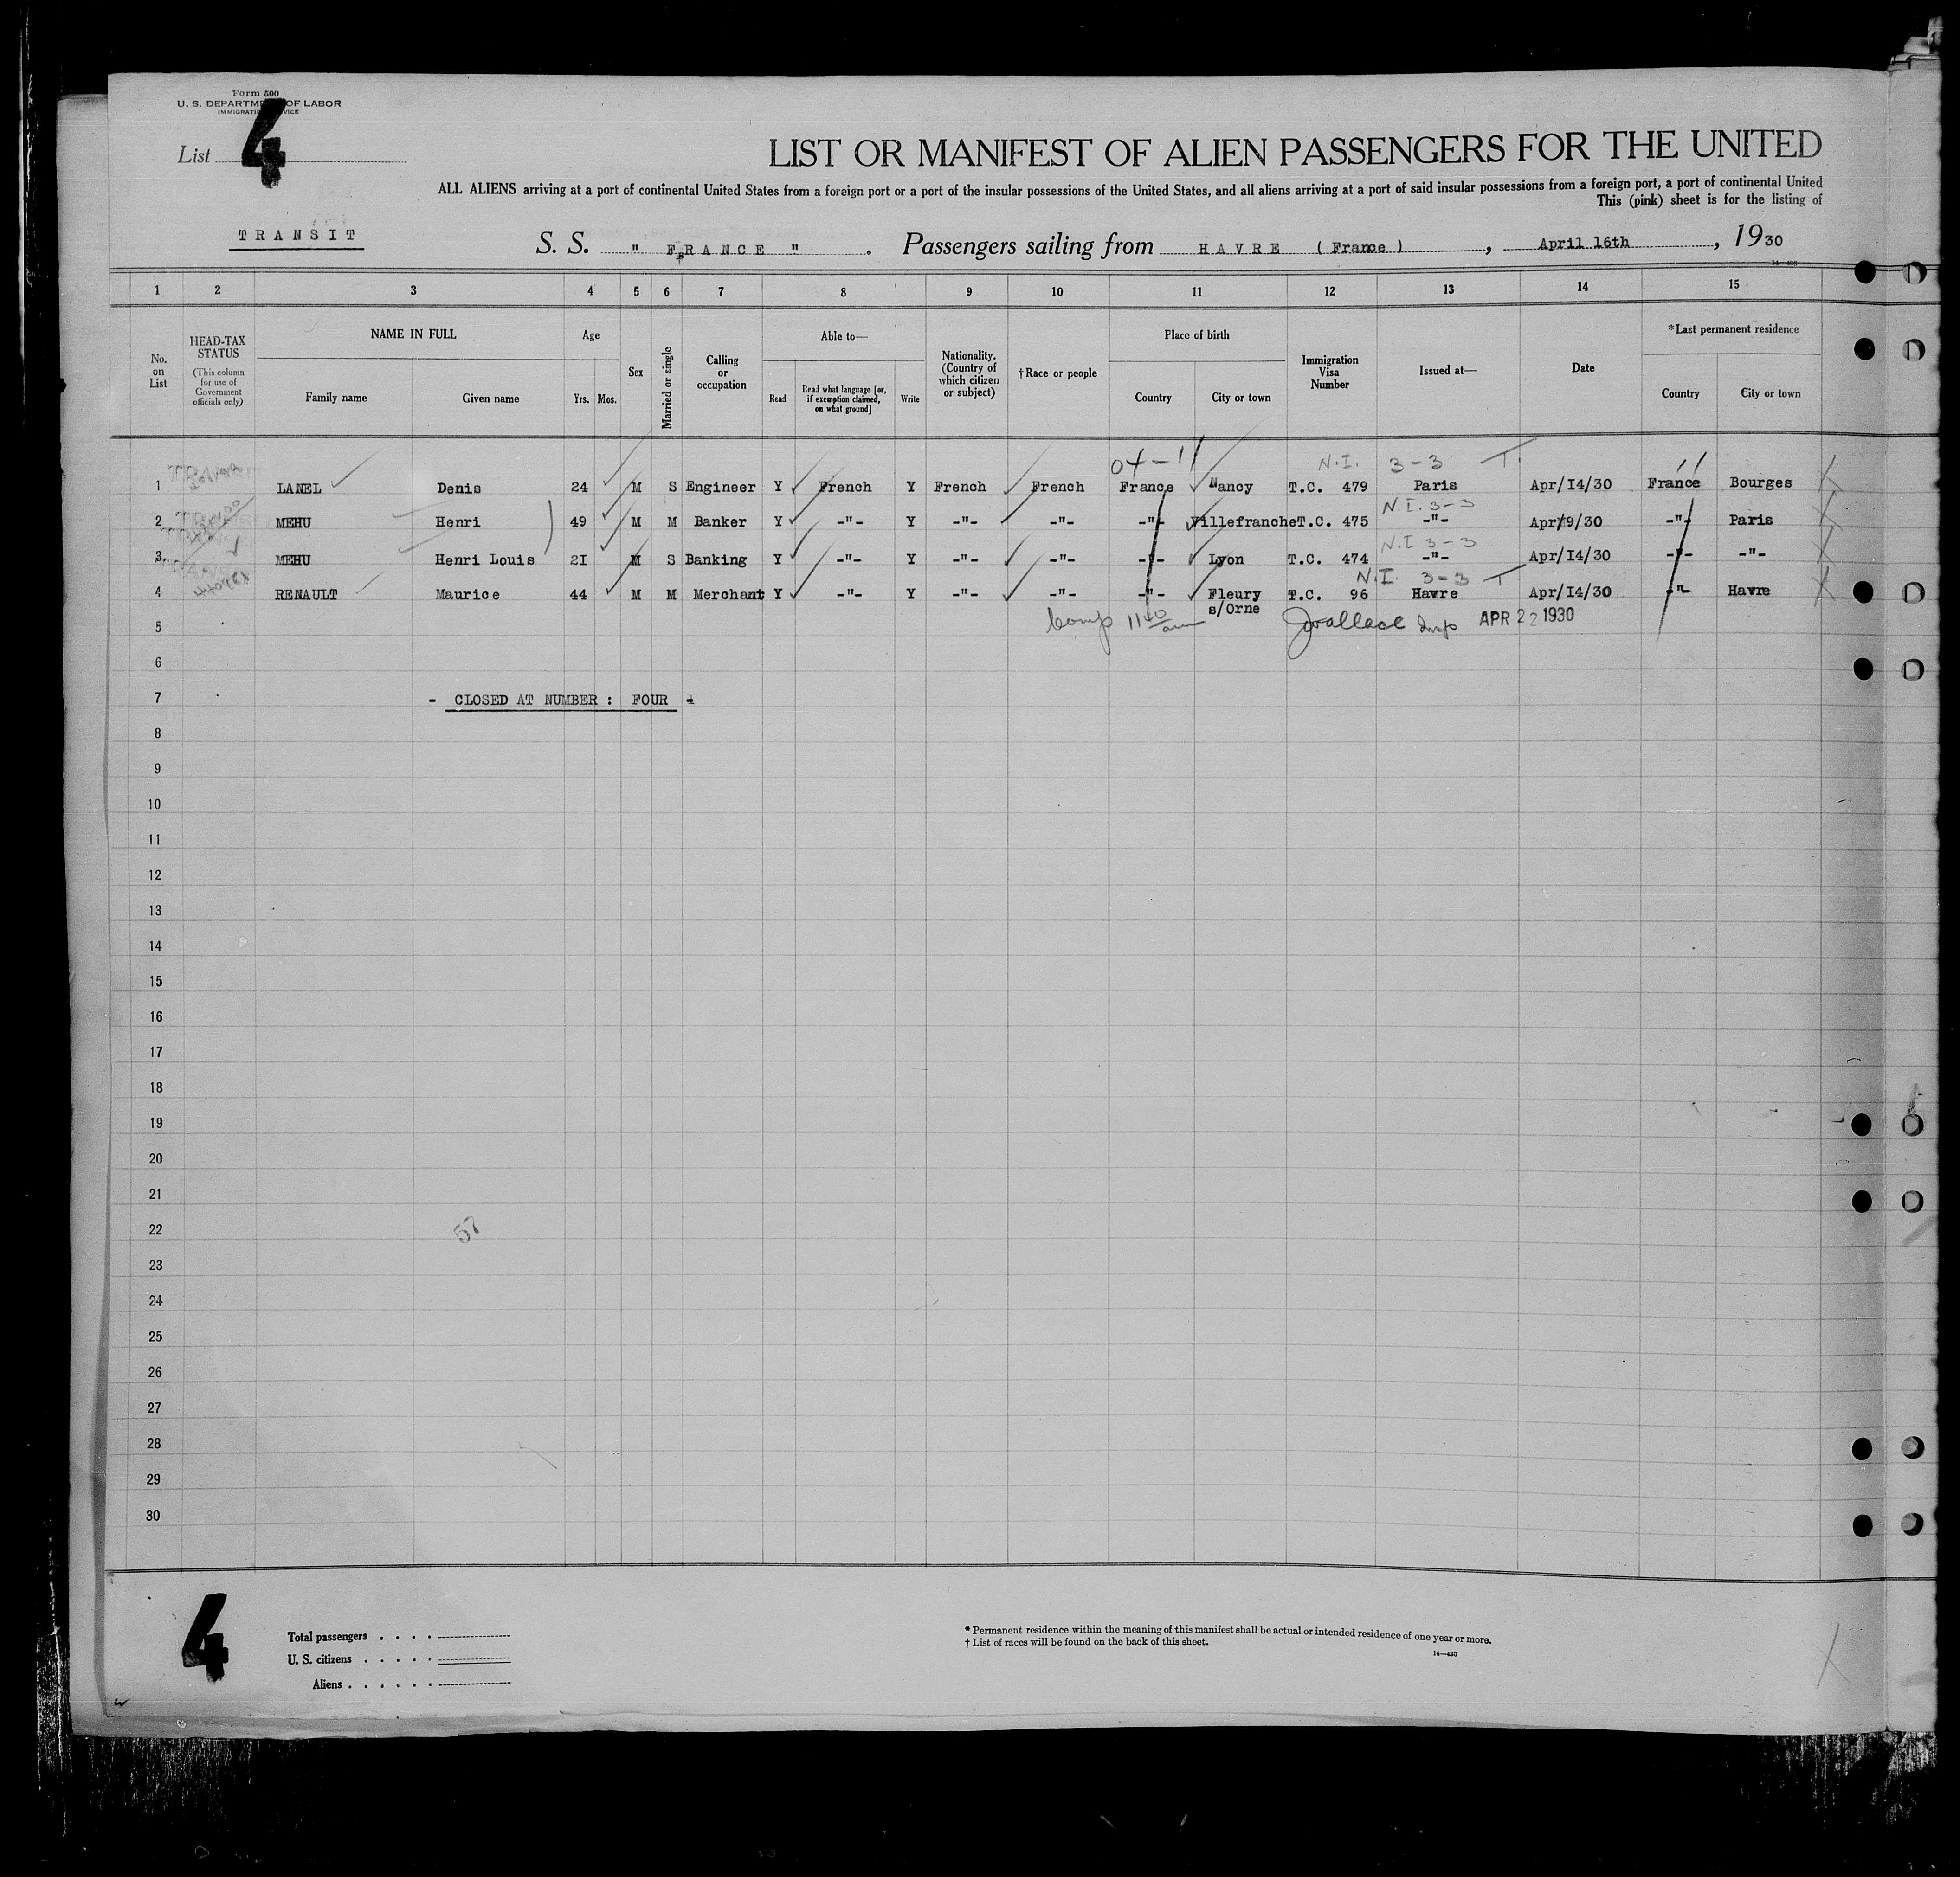 Form 500
U. S. DEPARTMENT OF LABOR
IMMIGRATION SERVICE
List 4
LIST OR MANIFEST OF ALIEN PASSENGERS FOR THE UNITED
ALL ALIENS arriving at a port of continental United States from a foreign port or a port of the insular possessions of the United States, and all aliens arriving at a port of said insular possessions from a foreign port, a port of continental United
This (pink) sheet is for the listing of
TRANSIT
S. S. " FRANCE " . Passengers sailing from HAVRE ( France ) , April 16th , 1930
1 2 3 4 5 6 7 8 9 10 11 12 13 14 15
No. on List
HEAD-TAX STATUS
(This column for use of Government officials only)
NAME IN FULL
Family name Given name
Age
Yrs. Mos.
Sex
Married or single
Calling or occupation
Able to—
Read
Read what language [or, if exemption claimed, on what ground]
Write
Nationality. (Country of which citizen or subject)
†Race or people
Place of birth
Country City or town
Immigration Visa Number
Issued at—
Date
*Last permanent residence
Country City or town
04-11 N.I. 3-3 T. 11
1 LANEL Denis 24 M S Engineer Y French Y French French France Nancy T.C. 479 Paris Apr/14/30 France Bourges
N.I. 3-3
2 MEHU Henri 49 M M Banker Y -"- Y -"- -"- -"- Villefranche T.C. 475 -"- Apr/9/30 -"- Paris
N.I 3-3
3 MEHU Henri Louis 21 M S Banking Y -"- Y -"- -"- -"- Lyon T.C. 474 -"- Apr/14/30 -"- -"-
N.I. 3-3 T
4 RENAULT Maurice 44 M M Merchant Y -"- Y -"- -"- -"- Fleury s/Orne T.C. 96 Havre Apr/14/30 -"- Havre
5 Comp 11 40 am JWallace Insp APR 22 1930
6
7 - CLOSED AT NUMBER : FOUR -
8
9
10
11
12
13
14
15
16
17
18
19
20
21
22 57
23
24
25
26
27
28
29
30
4
Total passengers . . . .
U. S. citizens . . . . .
Aliens . . . . . .
* Permanent residence within the meaning of this manifest shall be actual or intended residence of one year or more.
† List of races will be found on the back of this sheet.
14—430